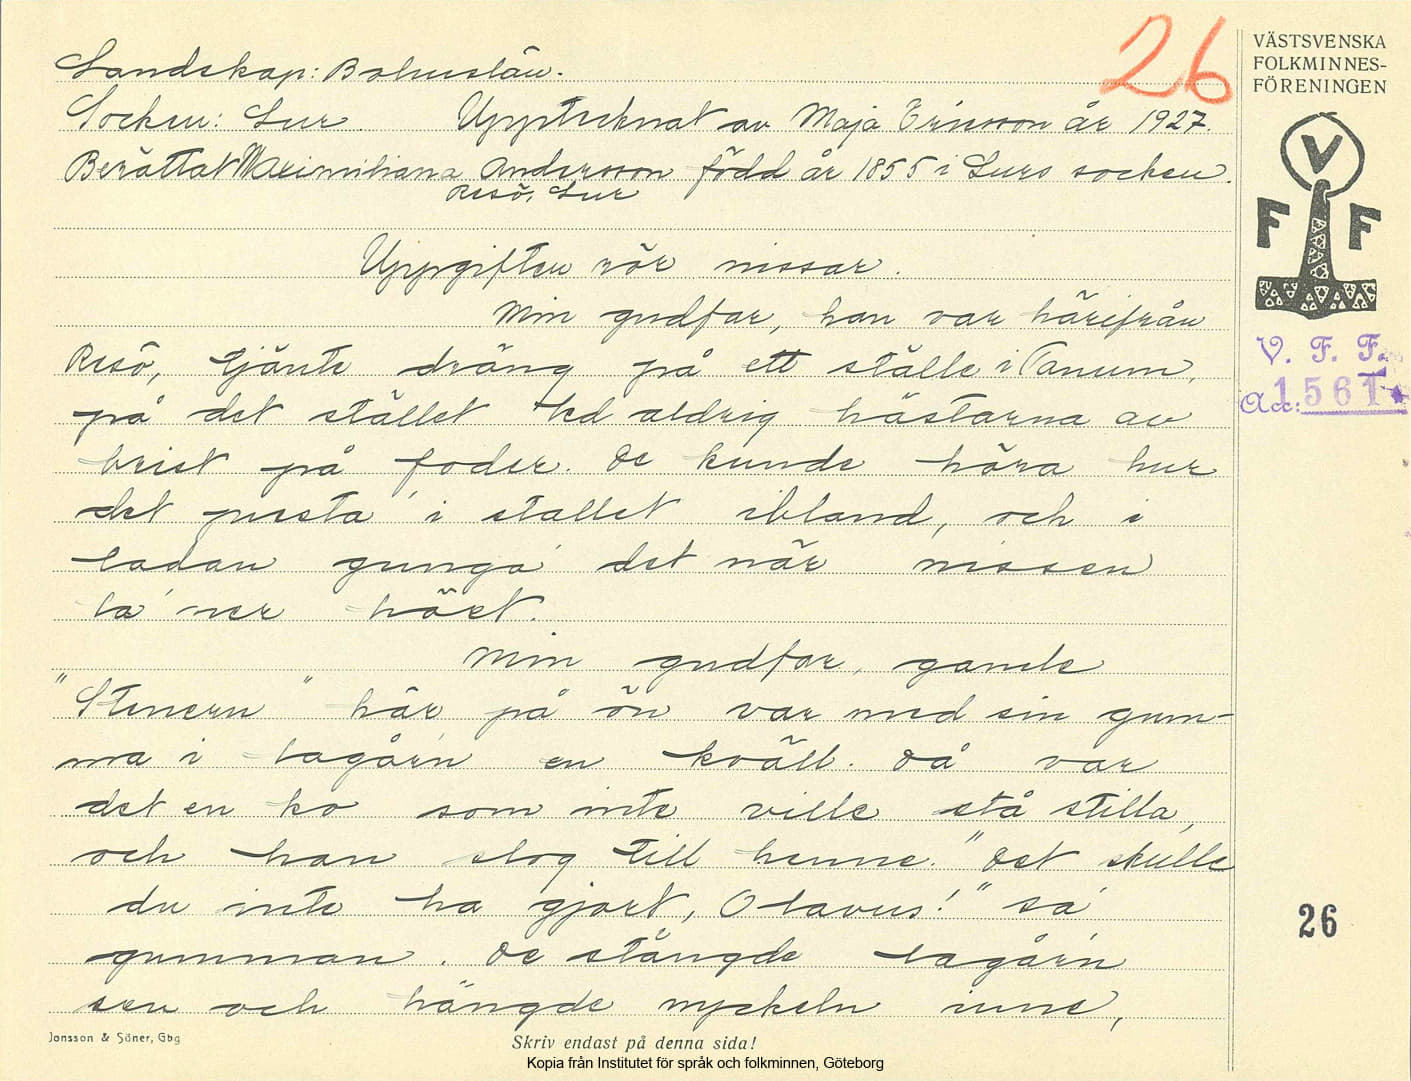 26
VÄSTSVENSKA
FOLKMINNES-
FÖRENINGEN
V
F F
V. F. F.
Acc: 1561
Landskap: Bohuslän.
Socken: Lur. Upptecknat av Maja Ericson år 1927.
Berättat Maximiliana Andersson född år 1855 i Lurs socken.
Resö, Lur
Uppgiften rör nissar.
Min gudfar, han var härifrån
Resö, tjänte dräng på ett ställe i Tanum,
på det stället led aldrig hästarna av
brist på foder. De kunde höra hur
det pusta' i stallet ibland, och i
ladan gunga' det när nissen
la' ner höet.
Min gudfar, gamle
"Stenern" här på ön var med sin gum-
ma i lagårn en kväll. Då var
det en ko som inte ville stå stilla,
och han slog till henne. "Det skulle
du inte ha gjort, Olavus!" sa'
gumman. De stängde lagårn
sen och hängde nyckeln inne,
26
Jonsson & Söner, Gbg
Skriv endast på denna sida!
Kopia från Institutet för språk och folkminnen, Göteborg